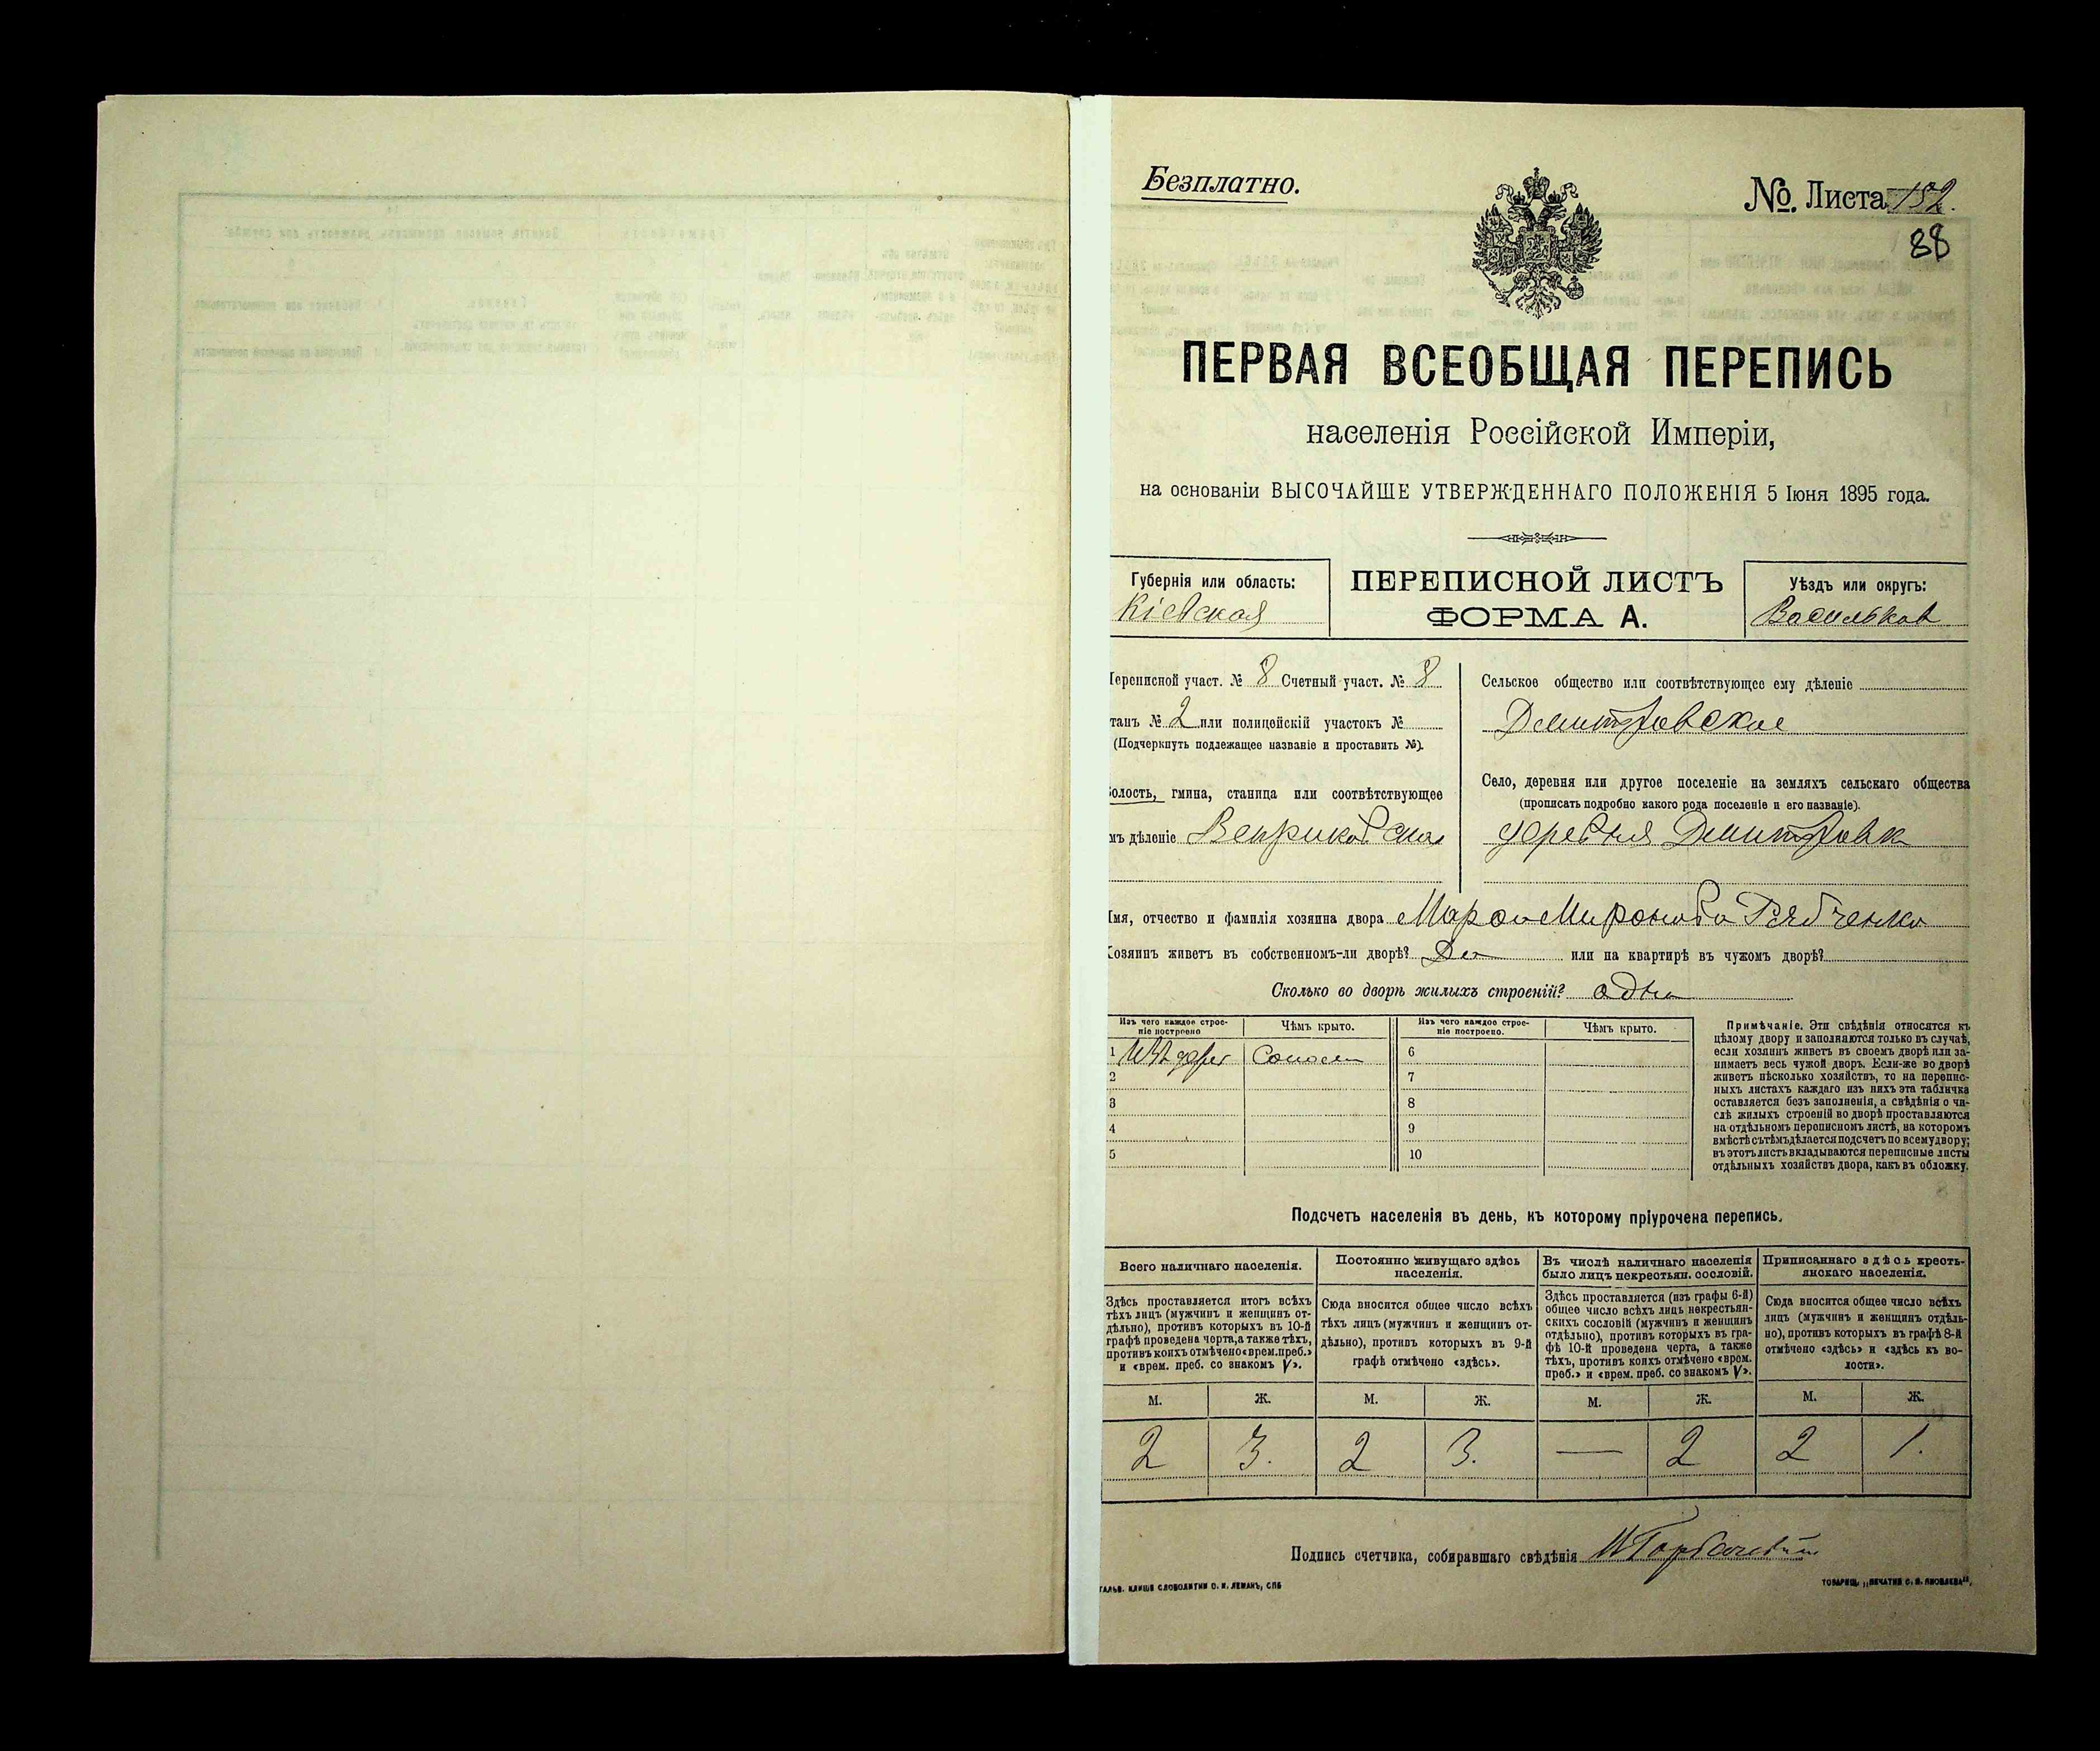 Безплатно.
№. Листа 152.
88
ПЕРВАЯ ВСЕОБЩАЯ ПЕРЕПИСЬ
населенія Россійской Имперіи,
на основаніи ВЫСОЧАЙШЕ УТВЕРЖДЕННАГО ПОЛОЖЕНІЯ 5 Іюня 1895 года.
Губернія или область:
Кіевская
ПЕРЕПИСНОЙ ЛИСТЪ
ФОРМА А.
Уѣздъ или округъ:
Васильков
Переписной участ. № 8 Счетный участ. № 8
танъ № 2 или полицейскій участокъ №
(Подчеркнуть подлежащее названіе и проставить №).
волость, гмина, станица или соотвѣтствующее
мъ дѣленіе Веприковская
Сельское общество или соотвѣтствующее ему дѣленіе
Дмитровское
Село, деревня или другое поселеніе на земляхъ сельскаго общества
(прописать подробно какого рода поселеніе и его названіе).
деревня Дмитровка
Имя, отчество и фамилія хозяина двора Миронова Рябченко
Хозяинъ живетъ въ собственномъ-ли дворѣ? Да или на квартирѣ въ чужомъ дворѣ?
Сколько во дворѣ жилыхъ строеній? одна
Изъ чего каждое строе-
ніе построено
Чѣмъ крыто.
Изъ чего каждое строе-
ніе построено.
Чѣмъ крыто.
1 Изъ дерев Солом 6
2 7
3 8
4 9
5 10
Примѣчаніе. Эти свѣдѣнія относятся къ
цѣлому двору и заполняются только въ случаѣ,
если хозяинъ живетъ въ своемъ дворѣ или за-
нимаетъ весь чужой дворъ. Если-же во дворѣ
живетъ нѣсколько хозяйствъ, то на перепис-
ныхъ листахъ каждаго изъ нихъ эта табличка
оставляется безъ заполненія, а свѣдѣнія о чи-
слѣ жилыхъ строеній во дворѣ проставляются
на отдѣльномъ переписномъ листѣ, на которомъ
вмѣстѣ съ тѣмъ дѣлается подсчетъ по всему двору;
въ этотъ листъ вкладываются переписные листы
отдѣльныхъ хозяйствъ двора, какъ въ обложку.
Подсчетъ населенія въ день, къ которому пріурочена перепись.
Всего наличнаго населенія.
Здѣсь проставляется итогъ всѣхъ
тѣхъ лицъ (мужчинъ и женщинъ от-
дѣльно), противъ которыхъ въ 10-й
графѣ проведена черта, а также тѣхъ,
противъ коихъ отмѣчено «врем. преб.»
и «врем. преб. со знакомъ V».
Постоянно живущаго здѣсь
населенія.
Сюда вносится общее число всѣхъ
тѣхъ лицъ (мужчинъ и женщинъ от-
дѣльно), противъ которыхъ въ 9-й
графѣ отмѣчено «здѣсь».
Въ числѣ наличнаго населенія
было лицъ некрестьян. сословій.
Здѣсь проставляется (изъ графы 6-й)
общее число всѣхъ лицъ некрестьян-
скихъ сословій (мужчинъ и женщинъ
отдѣльно), противъ которыхъ въ гра-
фѣ 10-й проведена черта, а также
тѣхъ, противъ коихъ отмѣчено «врем.
преб.» и «врем. преб. со знакомъ V».
Приписаннаго здѣсь кресть-
янскаго населенія.
Сюда вносится общее число всѣхъ
лицъ (мужчинъ и женщинъ отдѣль-
но), противъ которыхъ въ графѣ 8-й
отмѣчено «здѣсь» и «здѣсь къ во-
лости».
М. Ж. М. Ж. М. Ж. М. Ж.
2 3. 2 3. — 2 2 1.
Подпись счетчика, собиравшаго свѣдѣнія
ГАЛЬВ. КЛИШЕ СЛОВОЛИТНИ О. И. ЛЕМАНЪ, СПБ
ТОВАРИЩ. „ПЕЧАТНЯ С. П. ЯКОВЛЕВА“.